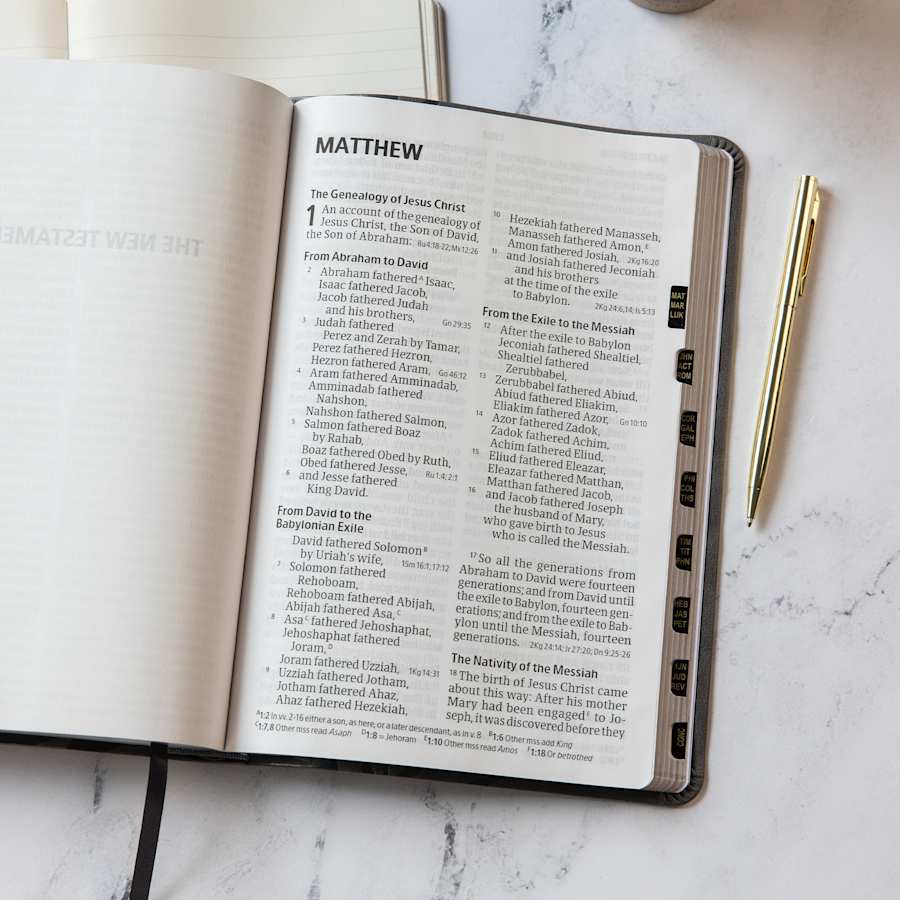 MATTHEW
The Genealogy of Jesus Christ
1 An account of the genealogy of
Jesus Christ, the Son of David,
the Son of Abraham: Ru4:18-22; Mk12:26
From Abraham to David
2 Abraham fathered A Isaac,
Isaac fathered Jacob,
Jacob fathered Judah
and his brothers, Gn 29:35
3 Judah fathered
Perez and Zerah by Tamar,
Perez fathered Hezron,
Hezron fathered Aram, Gn 46:12
4 Aram fathered Amminadab,
Amminadab fathered
Nahshon,
Nahshon fathered Salmon,
5 Salmon fathered Boaz
by Rahab,
Boaz fathered Obed by Ruth,
Obed fathered Jesse, Ru 1:4; 2:1
6 and Jesse fathered
King David.
From David to the
Babylonian Exile
David fathered Solomon B
by Uriah's wife, 1Sm 16:1; 17:12
7 Solomon fathered
Rehoboam,
Rehoboam fathered Abijah,
Abijah fathered Asa, C
8 Asa C fathered Jehoshaphat,
Jehoshaphat fathered
Joram, D
Joram fathered Uzziah, 1Kg 14:31
9 Uzziah fathered Jotham,
Jotham fathered Ahaz,
Ahaz fathered Hezekiah,
10 Hezekiah fathered Manasseh,
Manasseh fathered Amon, E
Amon fathered Josiah, 2Kg 16:20
11 and Josiah fathered Jeconiah
and his brothers
at the time of the exile
to Babylon. 2Kg 24:6,14; Is 5:13
From the Exile to the Messiah
12 After the exile to Babylon
Jeconiah fathered Shealtiel,
Shealtiel fathered
Zerubbabel,
13 Zerubbabel fathered Abiud,
Abiud fathered Eliakim,
Eliakim fathered Azor, Gn 10:10
14 Azor fathered Zadok,
Zadok fathered Achim,
Achim fathered Eliud,
15 Eliud fathered Eleazar,
Eleazar fathered Matthan,
Matthan fathered Jacob,
16 and Jacob fathered Joseph
the husband of Mary,
who gave birth to Jesus
who is called the Messiah.
17 So all the generations from
Abraham to David were fourteen
generations; and from David until
the exile to Babylon, fourteen gen-
erations; and from the exile to Bab-
ylon until the Messiah, fourteen
generations. 2Kg 24:14; Jr 27:20; Dn 9:25-26
The Nativity of the Messiah
18 The birth of Jesus Christ came
about this way: After his mother
Mary had been engaged F to Jo-
seph, it was discovered before they
A 1:2 In vv. 2-16 either a son, as here, or a later descendant, as in v. 8 B 1:6 Other mss add King
C 1:7,8 Other mss read Asaph D 1:8 = Jehoram E 1:10 Other mss read Amos F 1:18 Or betrothed
MAT
MAR
LUK
JHN
ACT
ROM
COR
GAL
EPH
PHI
COL
THS
TIM
TIT
PHN
HEB
JAS
PET
1JN
JUD
REV
CONC